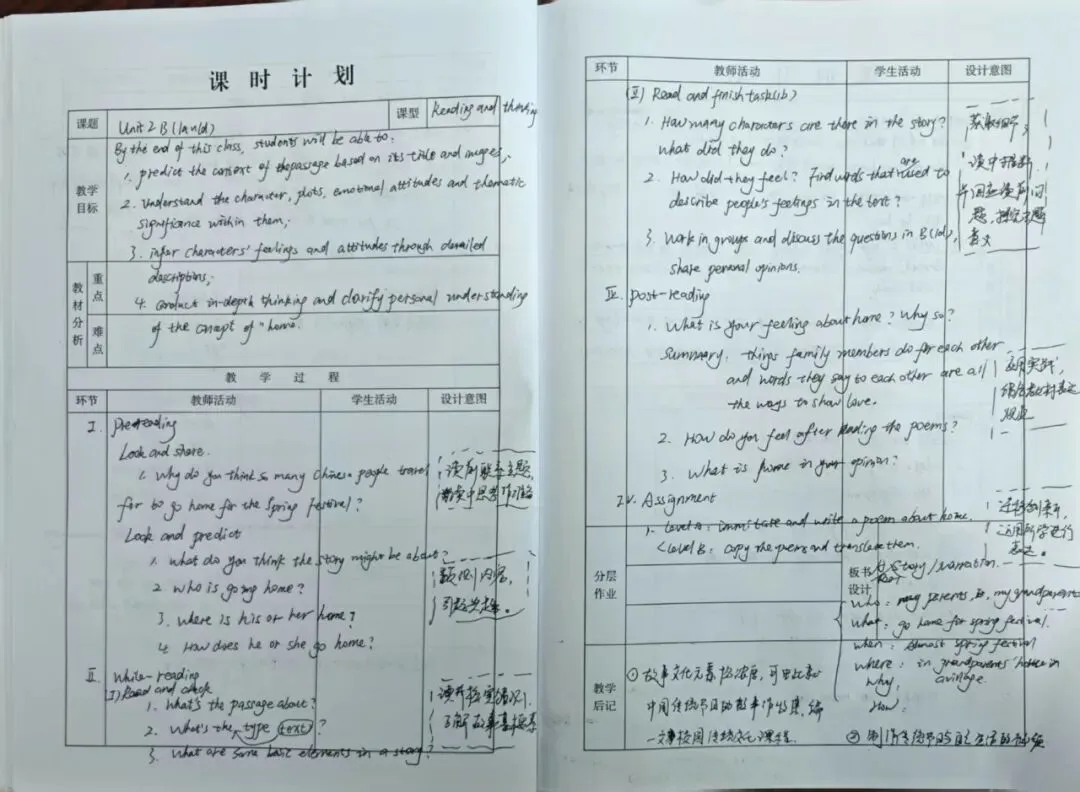 课时计划
课题 Unit 2 B(1a-1d) 课型 Reading and thinking
教学目标
By the end of this class, students will be able to:
1. predict the content of the passage based on its title and images;
2. understand the character, plots, emotional attitudes and thematic
significance within them;
3. infer characters' feelings and attitudes through detailed
descriptions;
4. conduct in-depth thinking and clarify personal understanding
of the concept of "home.
教材分析 重点 难点
教学过程
环节 教师活动 学生活动 设计意图
I. Pre-reading
Look and share.
1. Why do you think so many Chinese people travel
far to go home for the Spring Festival?
读前联系主题,
Look and predict
1. What do you think the story might be about?
2. Who is going home?
预测内容,
引起兴趣。
3. Where is his or her home?
4. How does he or she go home?
II. While-reading
(I) Read and check
1. What's the passage about?
2. What's the type (text)?
3. What are some basic elements in a story?
读并检实情况,
了解故事基本要素
环节 教师活动 学生活动 设计意图
(II) Read and finish task(1b)
1. How many characters are there in the story?
What did they do?
获取细节,
2. How did they feel? Find words that are used to
describe people's feelings in the text?
读中推断,
并回应读前问
题, 探究主题
意义
3. Work in groups and discuss the questions in B(1d),
share personal opinions.
III. Post-reading
1. What is your feeling about home? Why so?
Summary. things family members do for each other
and words they say to each other are all
the ways to show love.
应用实践,
2. How do you feel after reading the poems?
3. What is home in your opinion?
IV. Assignment
1. Level A: immitate and write a poem about home.
<Level B: copy the poems and translate them.
迁移创新,
运用所学进行
表达。
分层作业
板书设计
story / narration.
Who: my parents, I, my grandparents
What: go home for spring festival.
When: almost spring festival
Where: in grandparents' house in
a village.
Why:
How:
教学后记
① 故事文化元素较浓厚, 可
中国传统节日
一文章校园传统文化课程.
②